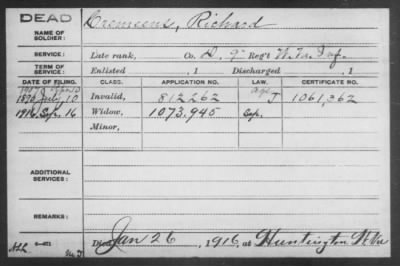 DEAD
Cremeens, Richard
NAME OF SOLDIER:
SERVICE: Late rank, Co. D, 9" Reg't W.Va. Inf.
TERM OF SERVICE: Enlisted , 1 Discharged , 1
DATE OF FILING. CLASS. APPLICATION NO. LAW. CERTIFICATE NO.
1907
July 10 Invalid, 812262 age J 1061,362
1916, Sep. 16 Widow, 1073.945 Sep.
Minor,
ADDITIONAL SERVICES:
REMARKS:
Died Jan 26, 1916, at Huntington W.Va